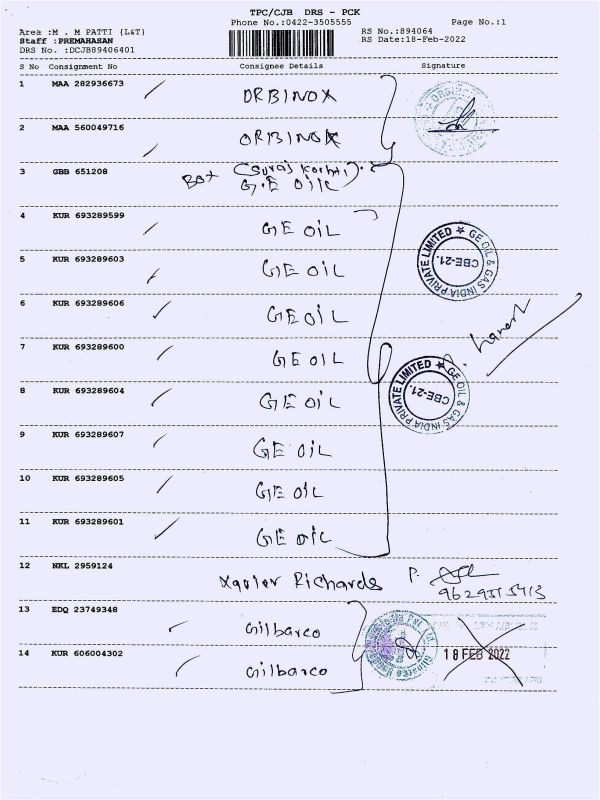 TPC/CJB DRS - PCK
Phone No.:0422-3505555
Page No.:1
Area :M . M PATTI (L&T)
RS No.:894064
Staff :PREMAHASAN
RS Date:18-Feb-2022
DRS No. :DCJB89406401
S No Consignment No Consignee Details Signature
1 MAA 282936673 ORBINOX
2 MAA 560049716 ORBINOX
3 GBB 651208 Box (Suraj
G.E OIL
4 KUR 693289599 GE OIL
GE OIL & GAS INDIA PRIVATE LIMITED ★
CBE-21.
5 KUR 693289603 GE OIL
6 KUR 693289606 GE OIL
7 KUR 693289600 GE OIL
GE OIL & GAS INDIA PRIVATE LIMITED ★
CBE-21.
8 KUR 693289604 GE OIL
9 KUR 693289607 GE OIL
10 KUR 693289605 GE OIL
11 KUR 693289601 GE OIL
12 NKL 2959124 Xavier Richards P.
13 EDQ 23749348 Gilbarco
14 KUR 606004302 Gilbarco
18 FEB 2022